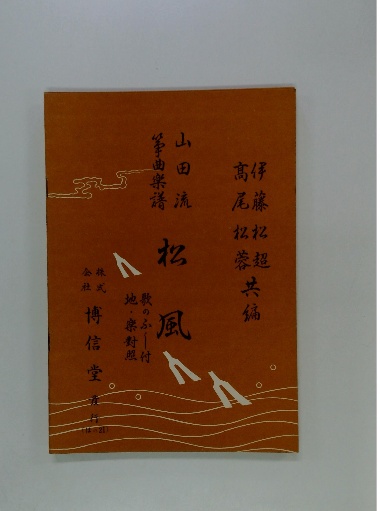 伊藤松超
髙尾松蓉共編
山田流
箏曲樂譜
松風
歌のふし付
地・楽対照
株式
会社
博信堂発行